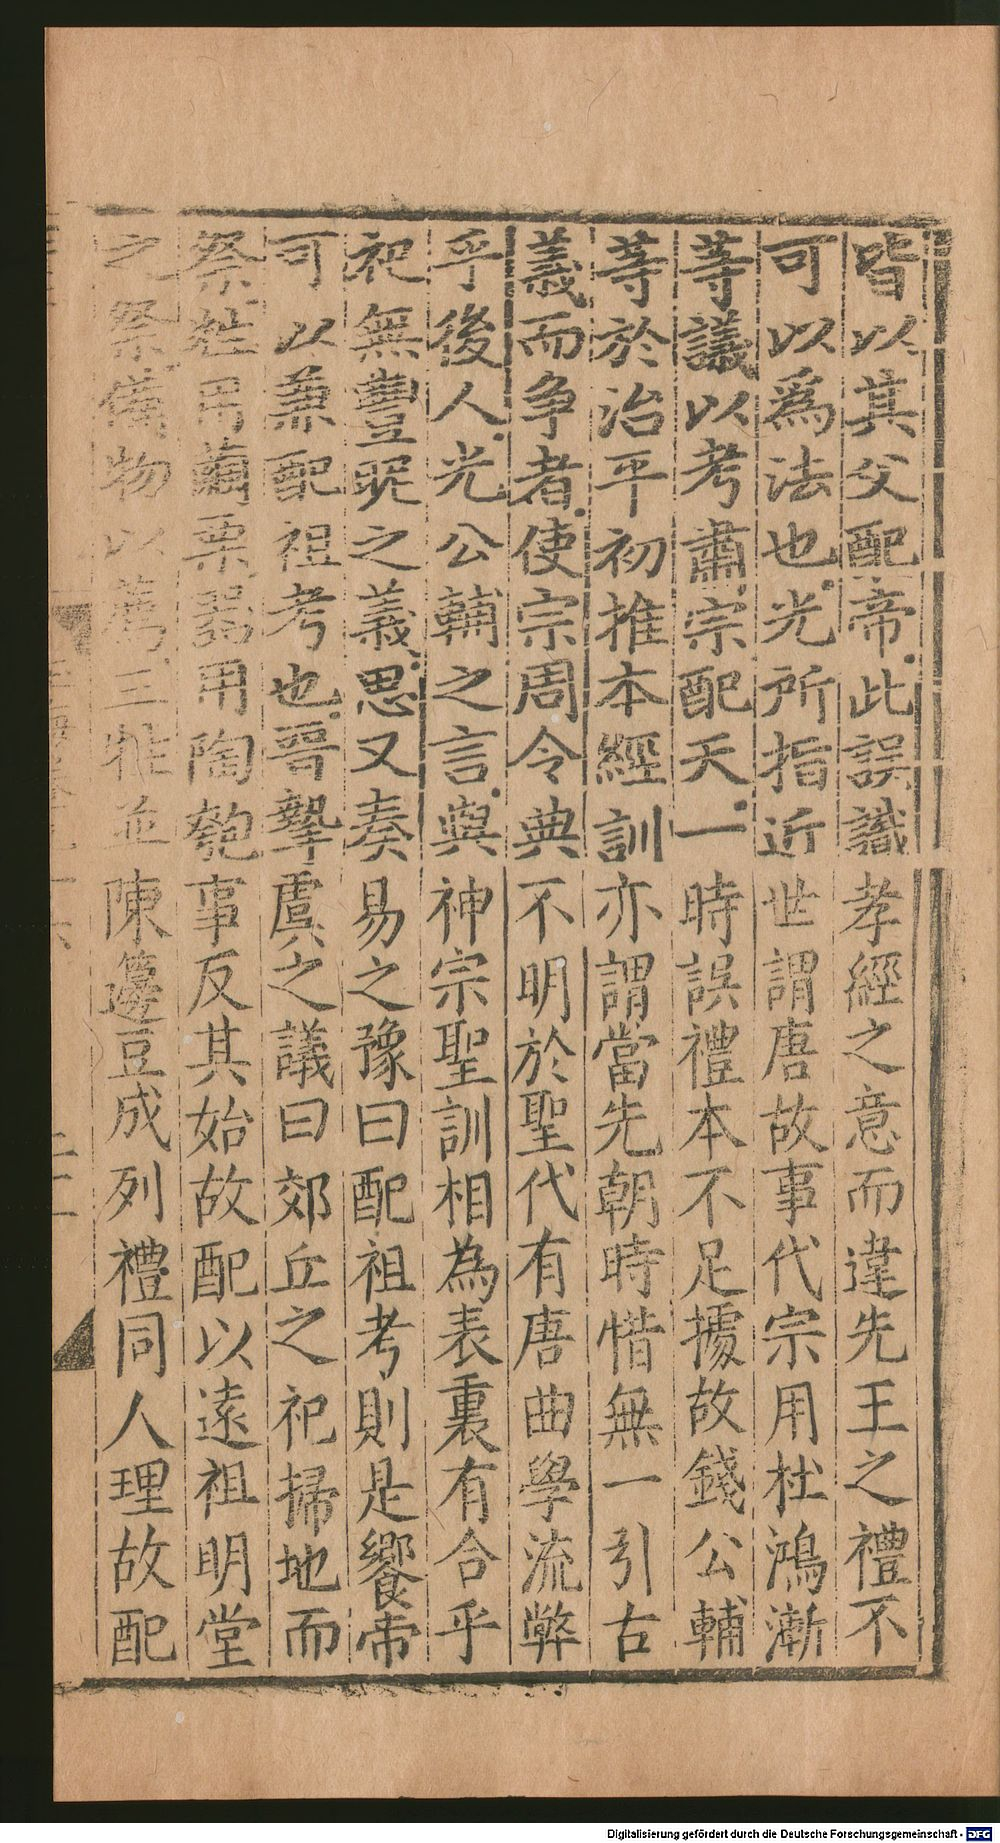 皆以其父配帝此誤識孝經之意而違先王之禮不
可以爲法也光所指近世謂唐故事代宗用杜鴻漸
等議以考肅宗配天一時誤禮本不足據故錢公輔
等於治平初推本經訓亦謂當先朝時惜無一引古
義而争者使宗周令典不明於聖代有唐曲學流弊
乎後人光公輔之言與神宗聖訓相為表裏有合乎
祀無豐昵之義思又奏易之豫曰配祖考則是饗帝
可以兼配祖考也哥摯虞之議曰郊丘之祀掃地而
祭牲用繭栗器用陶匏事反其始故配以遠祖明堂
之祭備物以薦三牲並陳籩豆成列禮同人理故配
Digitalisierung gefördert durch die Deutsche Forschungsgemeinschaft - DFG